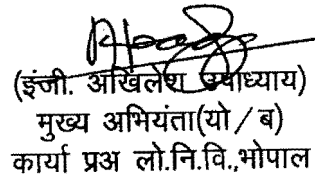 (इंजी. अखिलेश उपाध्याय)
मुख्य अभियंता(यो / ब)
कार्या प्रअ लो.नि.वि.,भोपाल